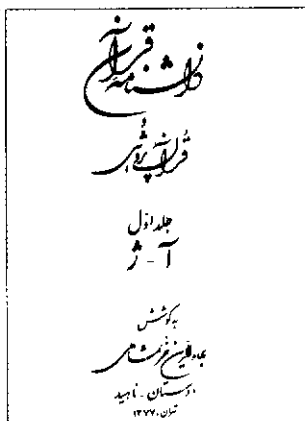 دانشنامه قرآن
و
قرآن پژوهی
جلد اول
آ - ژ
به کوشش
بهاءالدین خرمشاهی
دوستان - ناهید
تهران، ۱۳۷۷